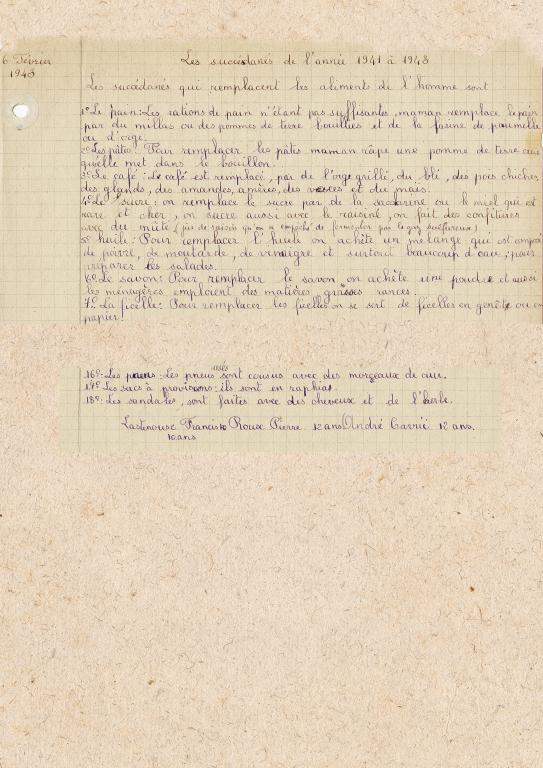 6 Février
1943
Les succédanés de l'année 1941 à 1943
Les succédanés qui remplacent les aliments de l'homme sont
1º Le pain: Les rations de pain n'étant pas suffisantes, maman remplace le pain
par du millas ou des pommes de terre bouillies et de la farine de paumelle
ou d'orge.
2º Les pâtes: Pour remplacer les pâtes maman râpe une pomme de terre crue
qu'elle met dans le bouillon.
3º Le café: Le café est remplacé, par de l'orge grillé, du blé, des pois chiches,
des glands, des amandes, amères, des vesces et du maïs.
4º Le sucre: on remplace le sucre par de la saccarine ou le miel que est
rare et cher, on sucre aussi avec le raisiné, on fait des confitures
avec du mûte (jus de raisin qu'on a empêché de fermenter par le gaz sulfureux)
5º huile: Pour remplacer l'huile on achète un mélange qui est composé
de poivre, de moutarde, de vinaigre et surtout beaucoup d'eau; pour
préparer les salades.
6º Le savon: Pour remplacer le savon on achète une poudre et aussi
les ménagères emploient des matières grasses rances.
7º La ficelle: Pour remplacer les ficelles on se sert de ficelles en genêts ou en
papier.
16º: Les pneus: les pneus usés sont cousus avec des morgeaux de cuir.
17º Les sacs à provisions: ils sont en raphias.
18º: Les sandales, sont faites avec des cheveux et de l'herbe.
Francis Roux Pierre 12 ans André Carrié 12 ans.
10 ans